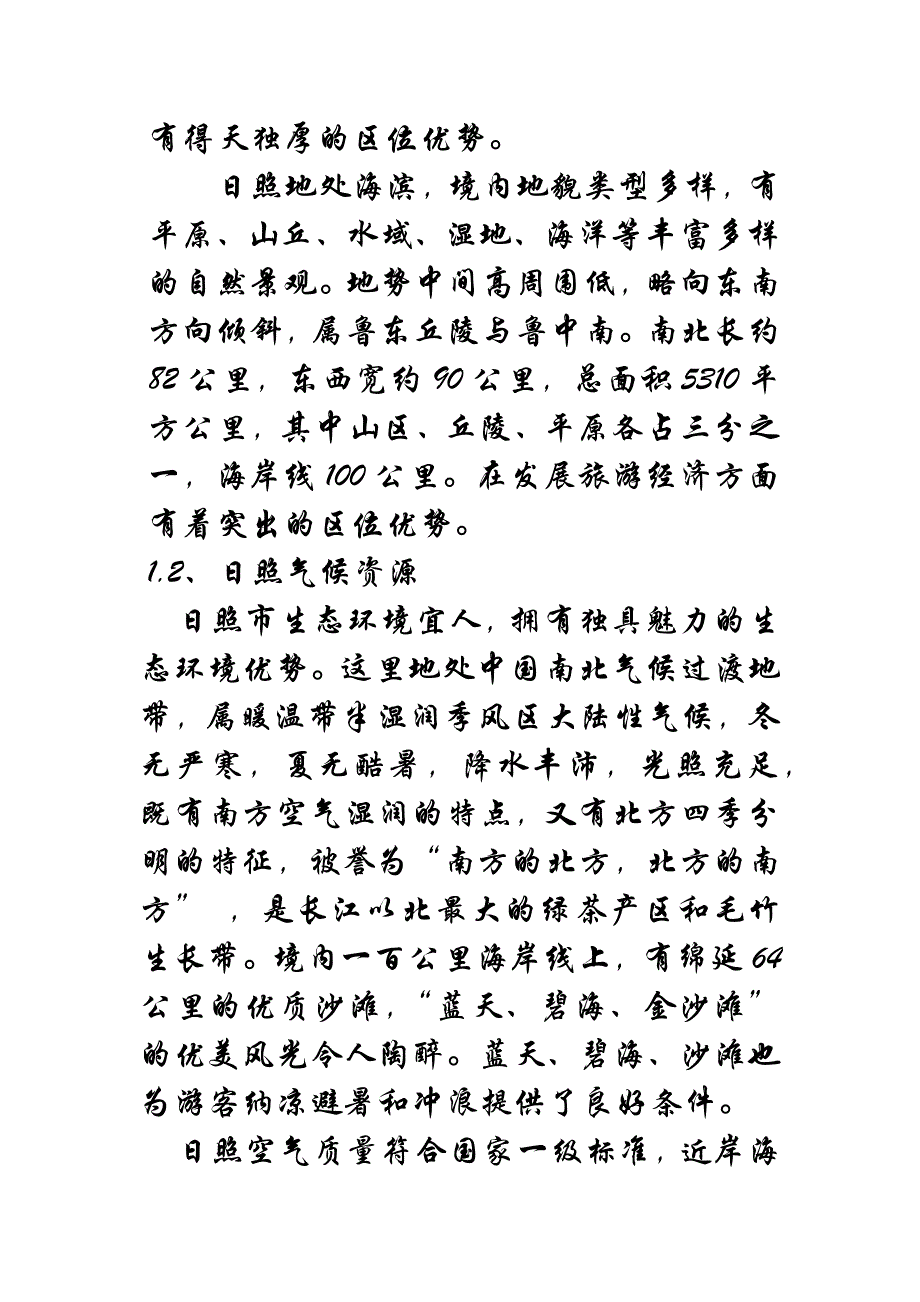 有得天独厚的区位优势。
日照地处海滨，境内地貌类型多样，有
平原、山丘、水域、湿地、海洋等丰富多样
的自然景观。地势中间高周围低，略向东南
方向倾斜，属鲁东丘陵与鲁中南。南北长约
82公里，东西宽约90公里，总面积5310平
方公里，其中山区、丘陵、平原各占三分之
一，海岸线100公里。在发展旅游经济方面
有着突出的区位优势。
1.2、日照气候资源
日照市生态环境宜人，拥有独具魅力的生
态环境优势。这里地处中国南北气候过渡地
带，属暖温带半湿润季风区大陆性气候，冬
无严寒，夏无酷暑，降水丰沛，光照充足，
既有南方空气湿润的特点，又有北方四季分
明的特征，被誉为“南方的北方，北方的南
方”，是长江以北最大的绿茶产区和毛竹
生长带。境内一百公里海岸线上，有绵延64
公里的优质沙滩，“蓝天、碧海、金沙滩”
的优美风光令人陶醉。蓝天、碧海、沙滩也
为游客纳凉避暑和冲浪提供了良好条件。
日照空气质量符合国家一级标准，近岸海